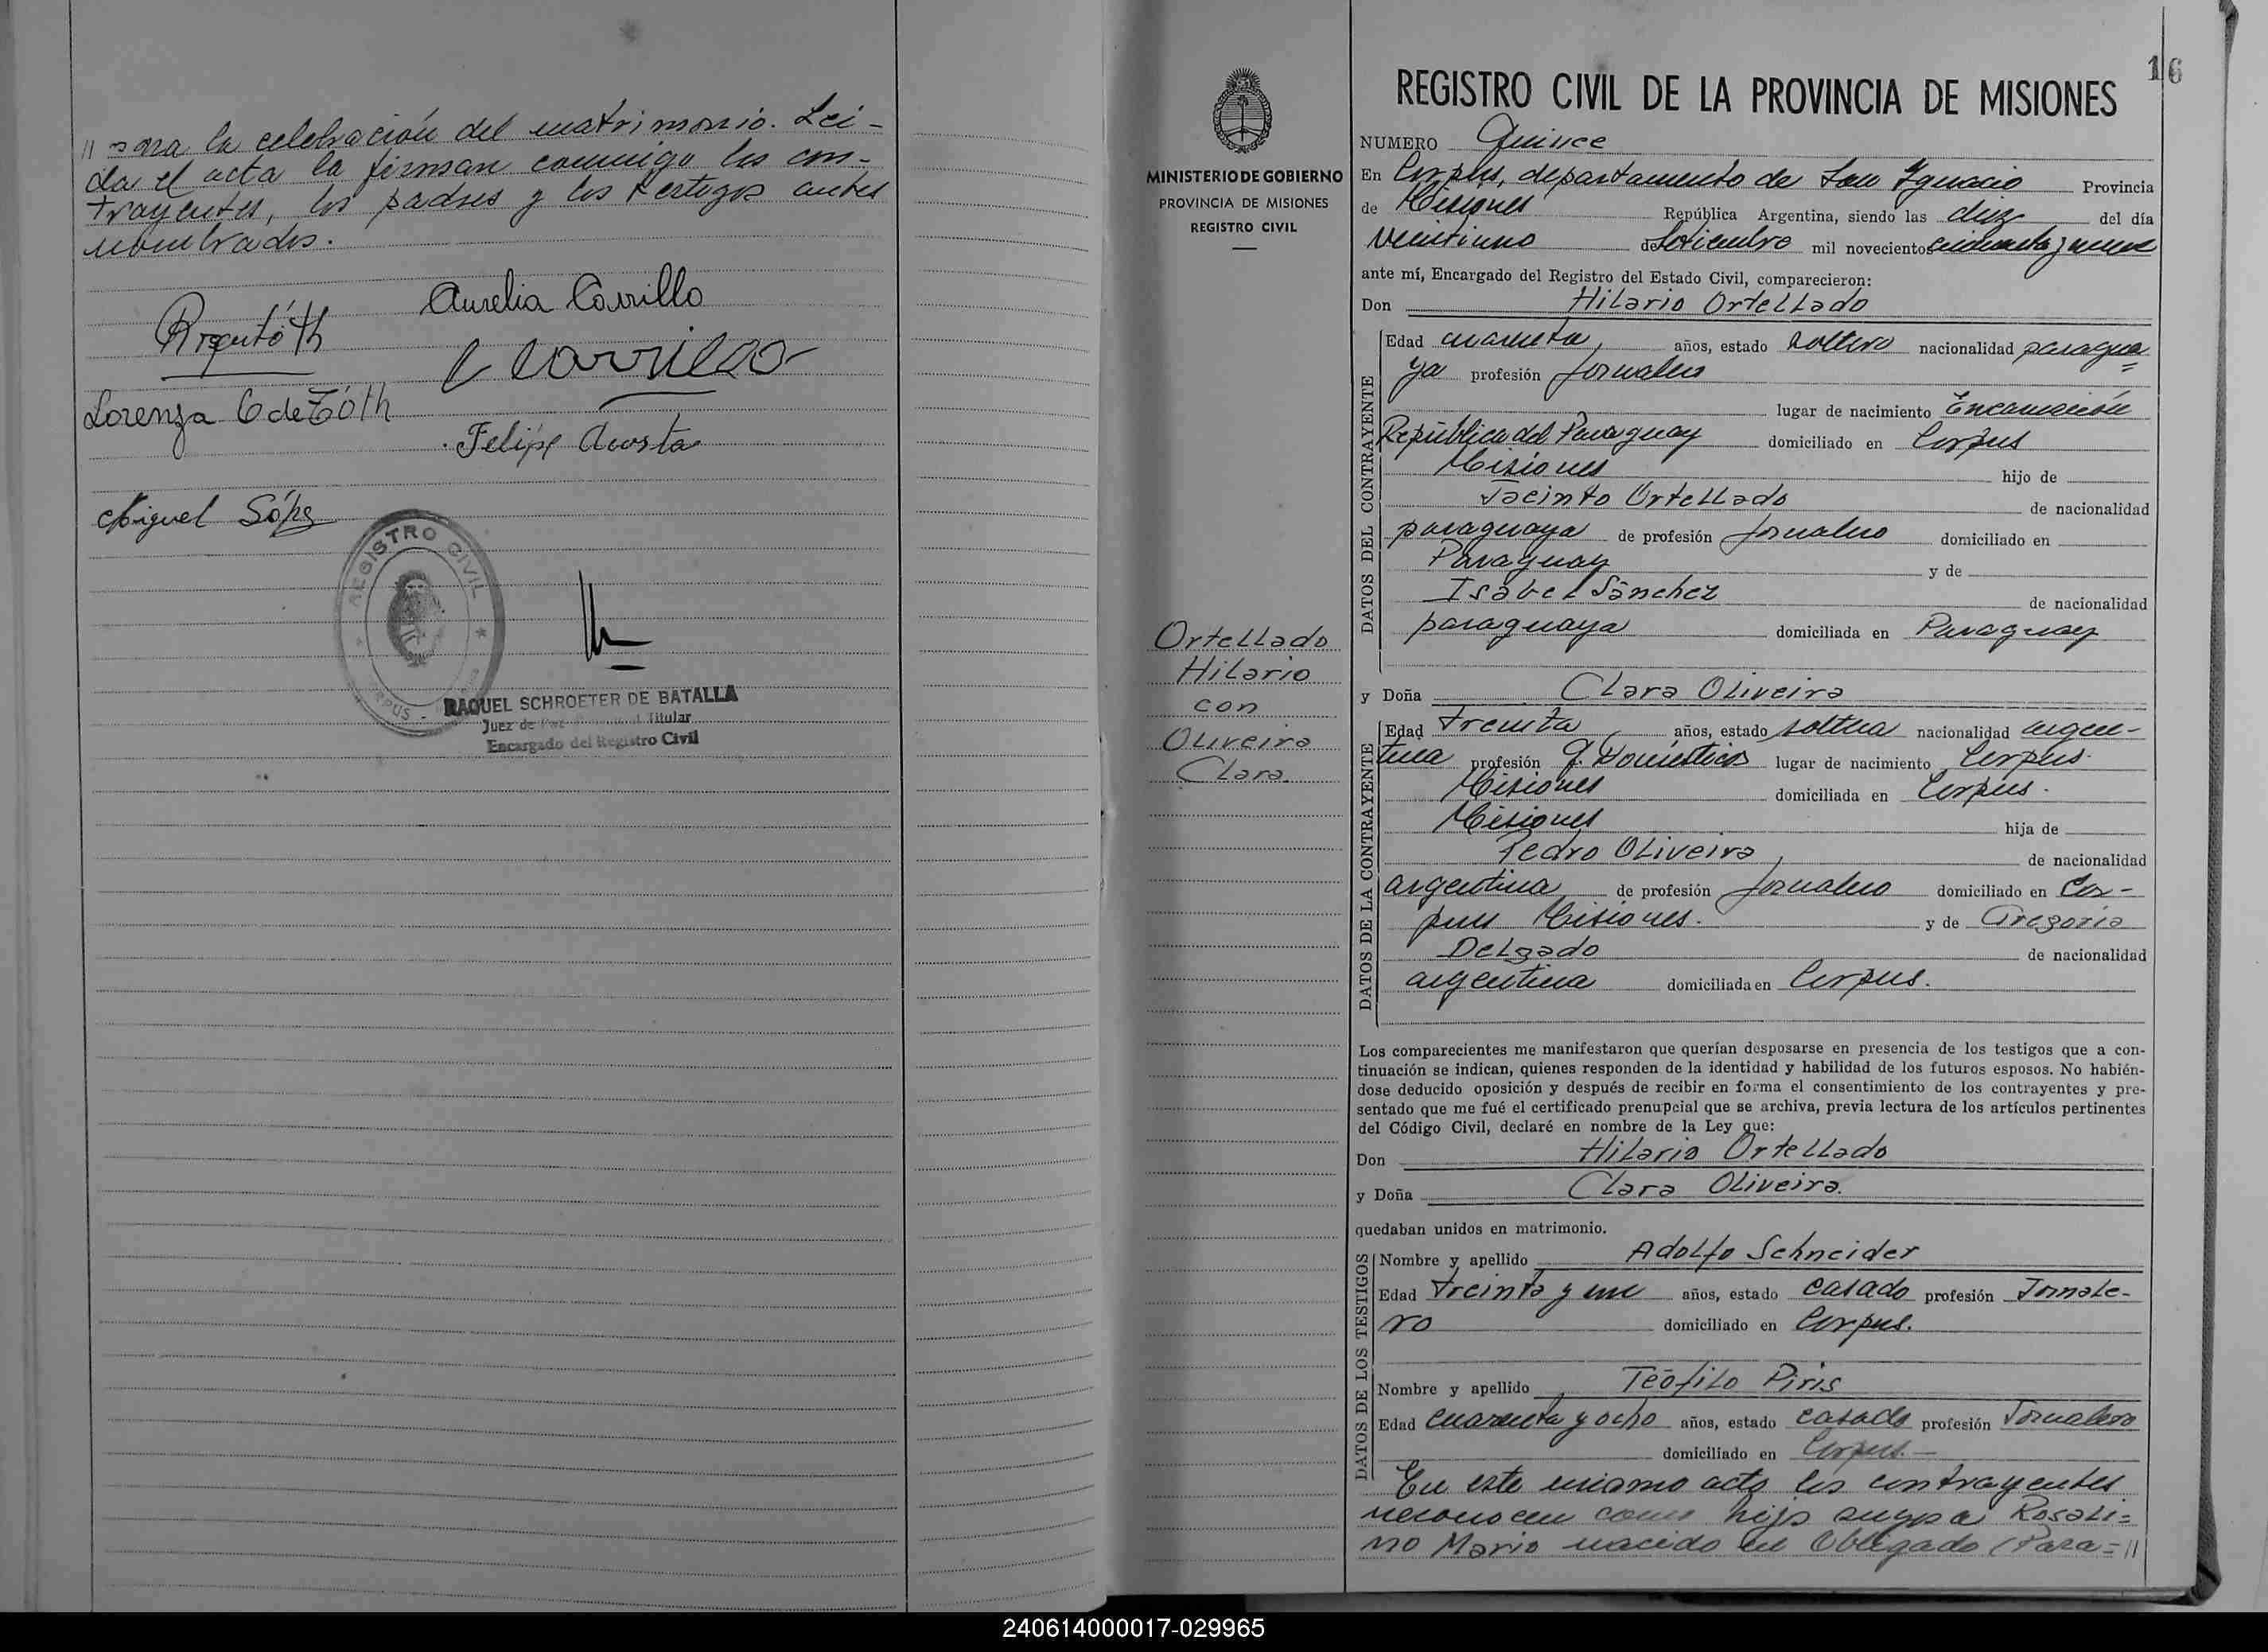 // para la celebración del matrimonio. Lei-
da el acta la firman conmigo los con-
trayentes, los padres y los testigos antes
nombrados.
Aurelia Carrillo
C Carrillo
Lorenza C de Tóth
Felipe Acosta
Miguel
REGISTRO CIVIL
RAQUEL SCHROETER DE BATALLA
Juez de Paz Titular
Encargado del Registro Civil
16
MINISTERIO DE GOBIERNO
PROVINCIA DE MISIONES
REGISTRO CIVIL
Ortellado
Hilario
con
Oliveira
Clara.
REGISTRO CIVIL DE LA PROVINCIA DE MISIONES
NUMERO Quince
En Corpus, departamento de San Ignacio Provincia
de Misiones República Argentina, siendo las diez del día
veintiuno de mil novecientos cincuenta y nueve
ante mí, Encargado del Registro del Estado Civil, comparecieron:
Don Hilario Ortellado
DATOS DEL CONTRAYENTE
Edad cuarenta, años, estado soltero nacionalidad paragua=
ya profesión jornalero
lugar de nacimiento Encarnación
República del Paraguay domiciliado en Corpus
Misiones hijo de
Jacinto Ortellado de nacionalidad
paraguaya de profesión jornalero domiciliado en
Paraguay y de
Isabel Sánchez de nacionalidad
paraguaya domiciliada en Paraguay
y Doña Clara Oliveira
DATOS DE LA CONTRAYENTE
Edad treinta, años, estado soltera nacionalidad argen-
tina profesión q. Domésticos lugar de nacimiento Corpus.
Misiones domiciliada en Corpus.
Misiones hija de
Pedro Oliveira, de nacionalidad
argentina de profesión jornalero domiciliado en Cor-
pus Misiones. y de Gregoria
Delgado de nacionalidad
argentina domiciliada en Corpus.
Los comparecientes me manifestaron que querían desposarse en presencia de los testigos que a con-
tinuación se indican, quienes responden de la identidad y habilidad de los futuros esposos. No habién-
dose deducido oposición y después de recibir en forma el consentimiento de los contrayentes y pre-
sentado que me fué el certificado prenupcial que se archiva, previa lectura de los artículos pertinentes
del Código Civil, declaré en nombre de la Ley que:
Don Hilario Ortellado
y Doña Clara Oliveira.
quedaban unidos en matrimonio.
DATOS DE LOS TESTIGOS
Nombre y apellido Adolfo Schneider
Edad treinta y un años, estado casado profesión Jornale-
ro domiciliado en Corpus.
Nombre y apellido Teófilo Piris
Edad cuarenta y ocho años, estado casado profesión Jornalero
domiciliado en Corpus.-
En este mismo acto los contrayentes
reconocen como hijo suyo a Rosali=
no Mario nacido en Obligado (Para=//
240614000017-029965